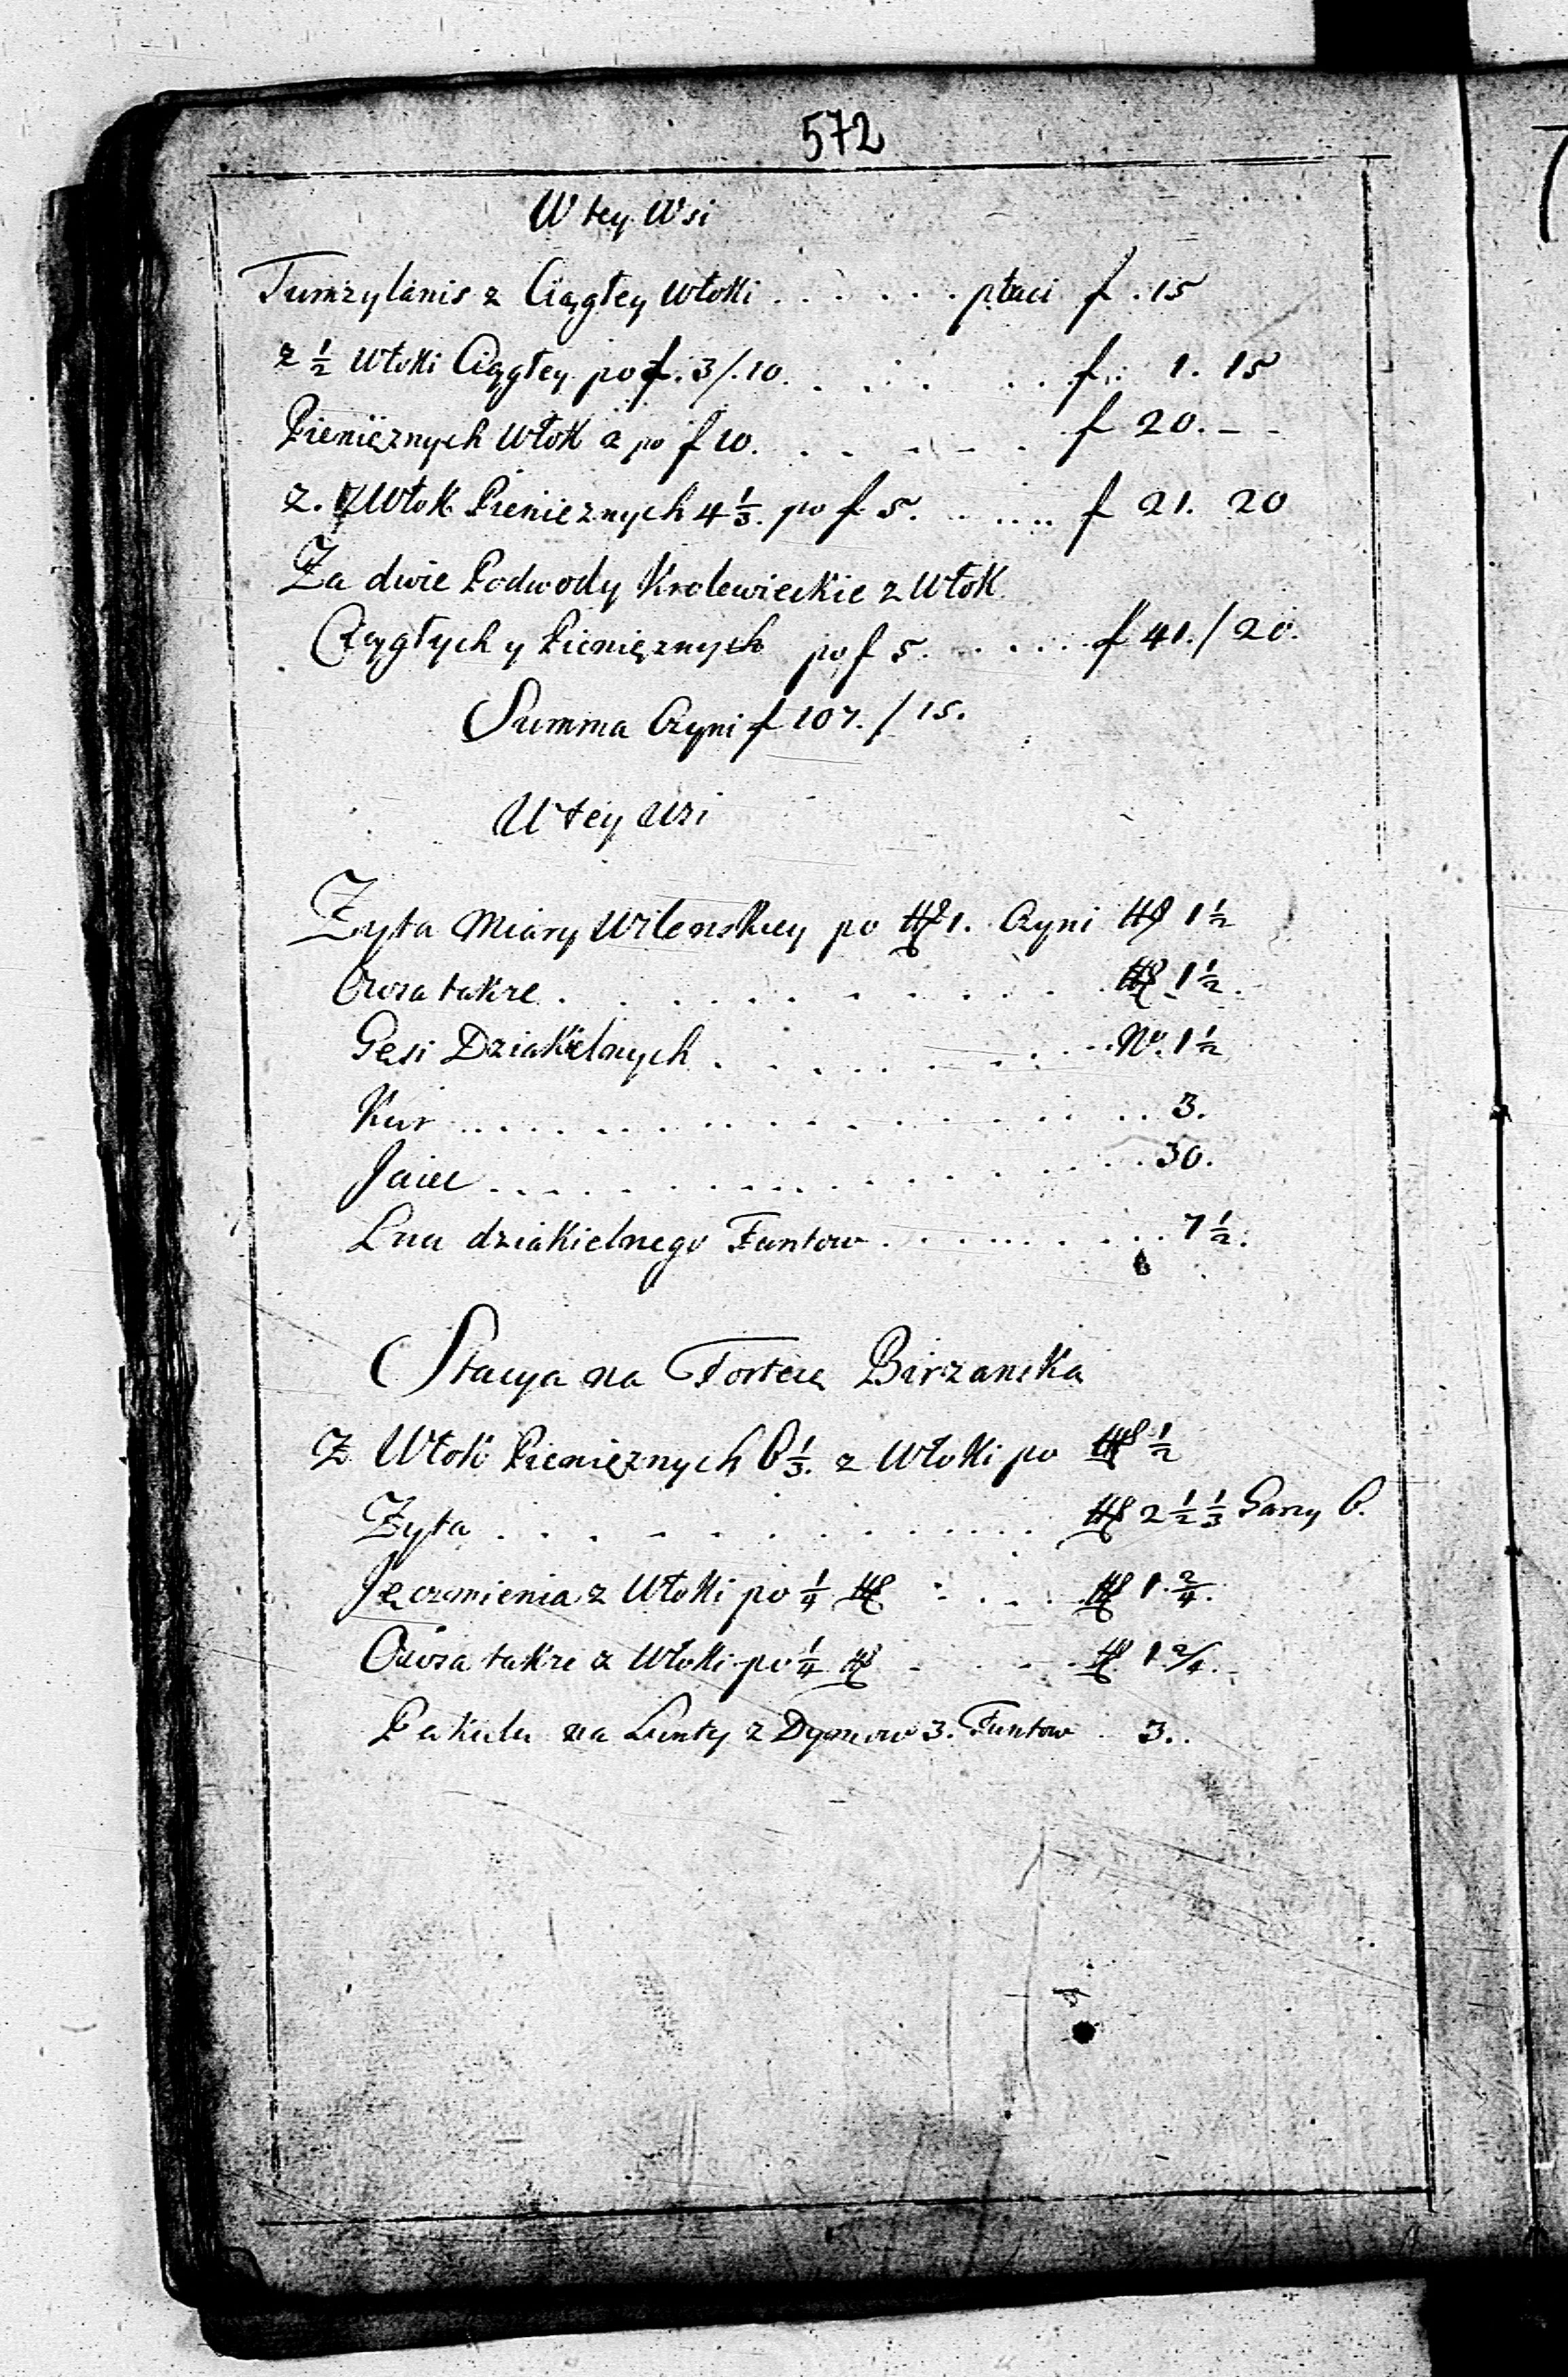 572
W tey Wsi
Tumzylanis z Ciągłey Włoki . . . . . . płaci f . 15
z ½ Włoki Ciągłey po f. 3/.10. . . . . . . f. 1. 15
Pienięznych Włok 2 po f 10. . . . . . . f 20. - -
z. Włok Pienięznych 4 ⅓. po f 5. . . . . . f 21. 20
Za dwie Podwody Krolewieckie z Włok
Ciągłych y Pienięznych po f 5. . . . . . f 41./20.
Summa Czyni f 107./15.
W tey Wsi
Zyta Miary Wilenskiey po 1. Czyni 1 ½
Owsa takze . . . . . . . . . . 1 ½.
Gęsi Dziakielnych . . . . . . . . No. 1 ½
Kur . . . . . . . . . . . . . . 3.
Jaiec . . . . . . . . . . . . . . 30.
Lnu dziakielnego Funtow . . . . . . . . 7 ½.
Stacya na Fortecę Birzanska
Z Włok Pienięznych 6 ⅓. z Włoki po ½
Zyta . . . . . . . . . . . . . 2 ½ ⅓ Garcy 6.
Jęczmienia z Włoki po ¼ . . . . 1. 2/4.
Owsa takze z Włoki po ¼ . . . . 1 2/4.
Pakuła na Lunty z Dymow 3. Funtow . 3.